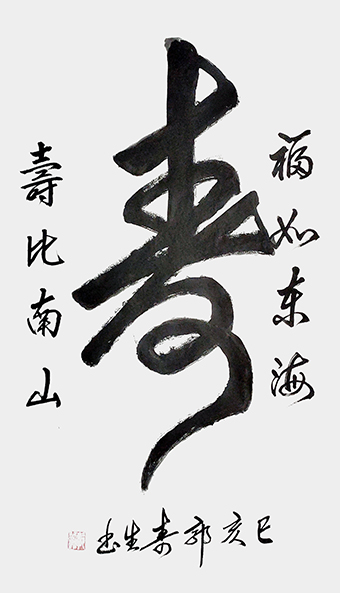 福如东海
寿
壽比南山
己亥郭寿生书